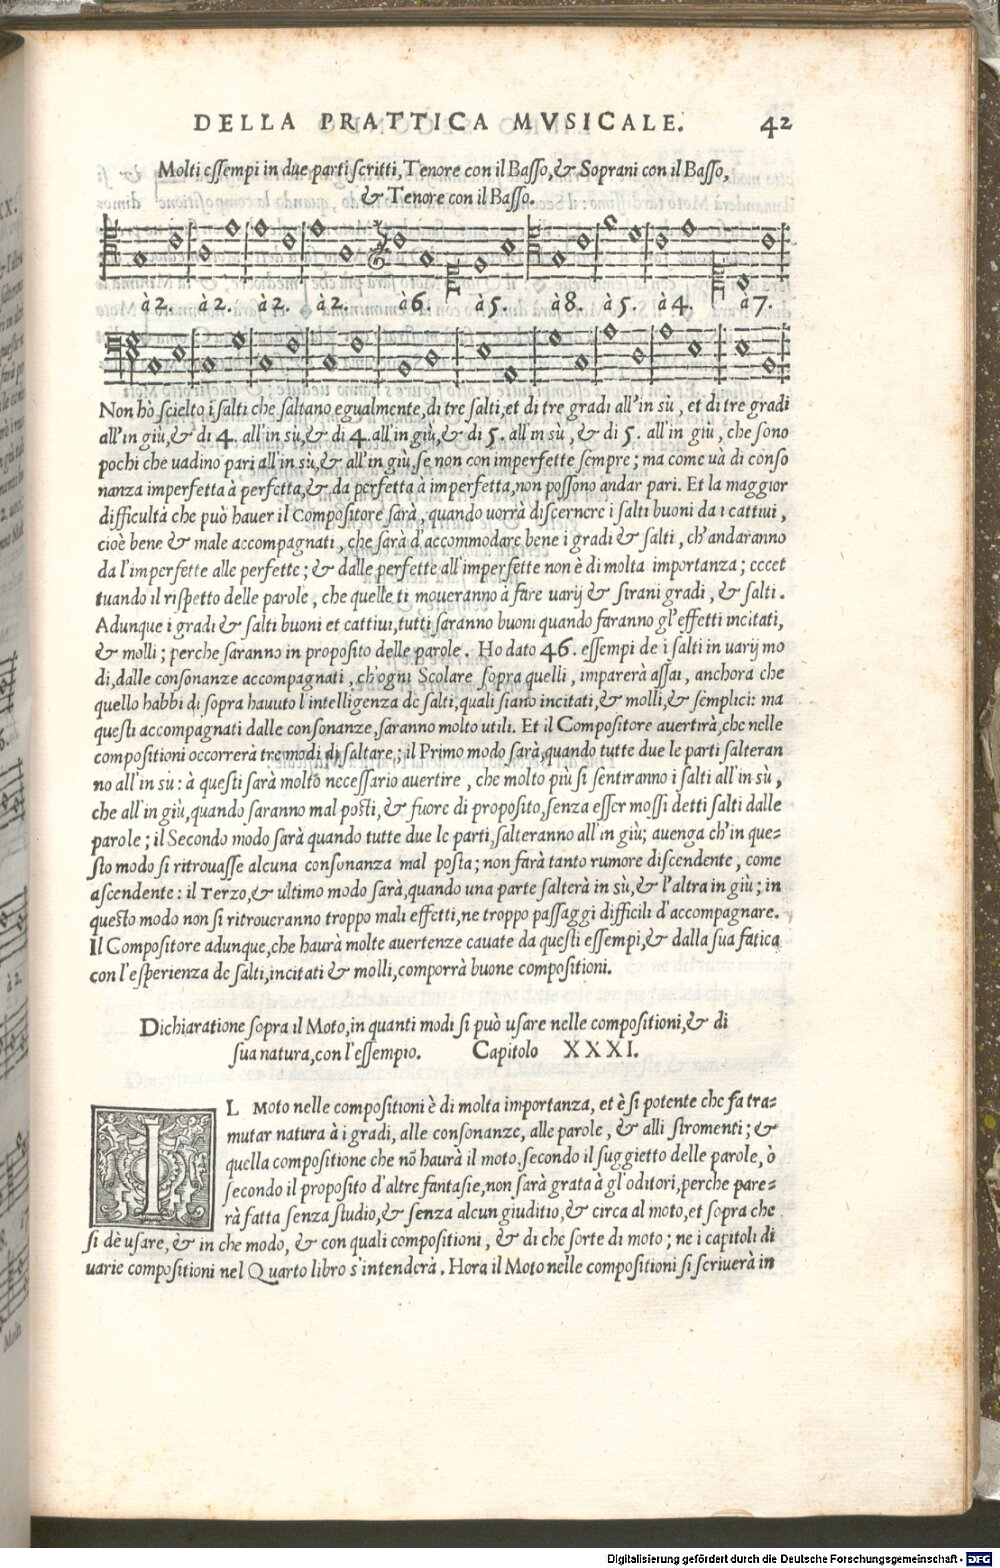 DELLA PRATTICA MVSICALE. 42
Molti essempi in due parti scritti, Tenore con il Basso, & Soprani con il Basso,
& Tenore con il Basso.
à 2. à 2. à 2. à 2. à 6. à 5. à 8. à 5. à 4. à 7.
Non hò scielto i salti che saltano egualmente, di tre salti, et di tre gradi all'in sù, et di tre gradi
all'in giù, & di 4. all'in sù, & di 4. all'in giù, & di 5. all'in sù, & di 5. all'in giù, che sono
pochi che uadino pari all'in sù, & all'in giù, se non con imperfette sempre; ma come uà di conso
nanza imperfetta à perfetta, & da perfetta à imperfetta, non possono andar pari. Et la maggior
difficultà che può hauer il Compositore sarà, quando uorrà discernere i salti buoni da i cattiui,
cioè bene & male accompagnati, che sarà d'accommodare bene i gradi & salti, ch'andaranno
da l'imperfette alle perfette; & dalle perfette all'imperfette non è di molta importanza; eccet
tuando il rispetto delle parole, che quelle ti moueranno à fare uarij & strani gradi, & salti.
Adunque i gradi & salti buoni et cattiui, tutti saranno buoni quando faranno gl'effetti incitati,
& molli; perche saranno in proposito delle parole. Ho dato 46. essempi de i salti in uarij mo
di, dalle consonanze accompagnati, ch'ogni Scolare sopra quelli, imparerà assai, anchora che
quello habbi di sopra hauuto l'intelligenza de salti, quali siano incitati, & molli, & semplici: ma
questi accompagnati dalle consonanze, saranno molto utili. Et il Compositore auertirà, che nelle
compositioni occorrerà tre modi di saltare; il Primo modo sarà, quando tutte due le parti salteran
no all'in sù: à questi sarà molto necessario auertire, che molto più si sentiranno i salti all'in sù,
che all'in giù, quando saranno mal posti, & fuore di proposito, senza esser mossi detti salti dalle
parole; il Secondo modo sarà quando tutte due le parti, salteranno all'in giù; auenga ch'in que=
sto modo si ritrouasse alcuna consonanza mal posta; non farà tanto rumore discendente, come
ascendente: il Terzo, & ultimo modo sarà, quando una parte salterà in sù, & l'altra in giù; in
questo modo non si ritroueranno troppo mali effetti, ne troppo passaggi difficili d'accompagnare.
Il Compositore adunque, che haurà molte auertenze cauate da questi essempi, & dalla sua fatica
con l'esperienza de salti, incitati & molli, comporrà buone compositioni.
Dichiaratione sopra il Moto, in quanti modi si può usare nelle compositioni, & di
sua natura, con l'essempio. Capitolo XXXI.
IL Moto nelle compositioni è di molta importanza, et è si potente che fa tra=
mutar natura à i gradi, alle consonanze, alle parole, & alli stromenti; &
quella compositione che nō haurà il moto, secondo il suggietto delle parole, ò
secondo il proposito d'altre fantasie, non sarà grata à gl'oditori, perche pare=
rà fatta senza studio, & senza alcun giuditio, & circa al moto, et sopra che
si dè usare, & in che modo, & con quali compositioni, & di che sorte di moto; ne i capitoli di
uarie compositioni nel Quarto libro s'intenderà. Hora il Moto nelle compositioni si scriuerà in
Digitalisierung gefördert durch die Deutsche Forschungsgemeinschaft - DFG